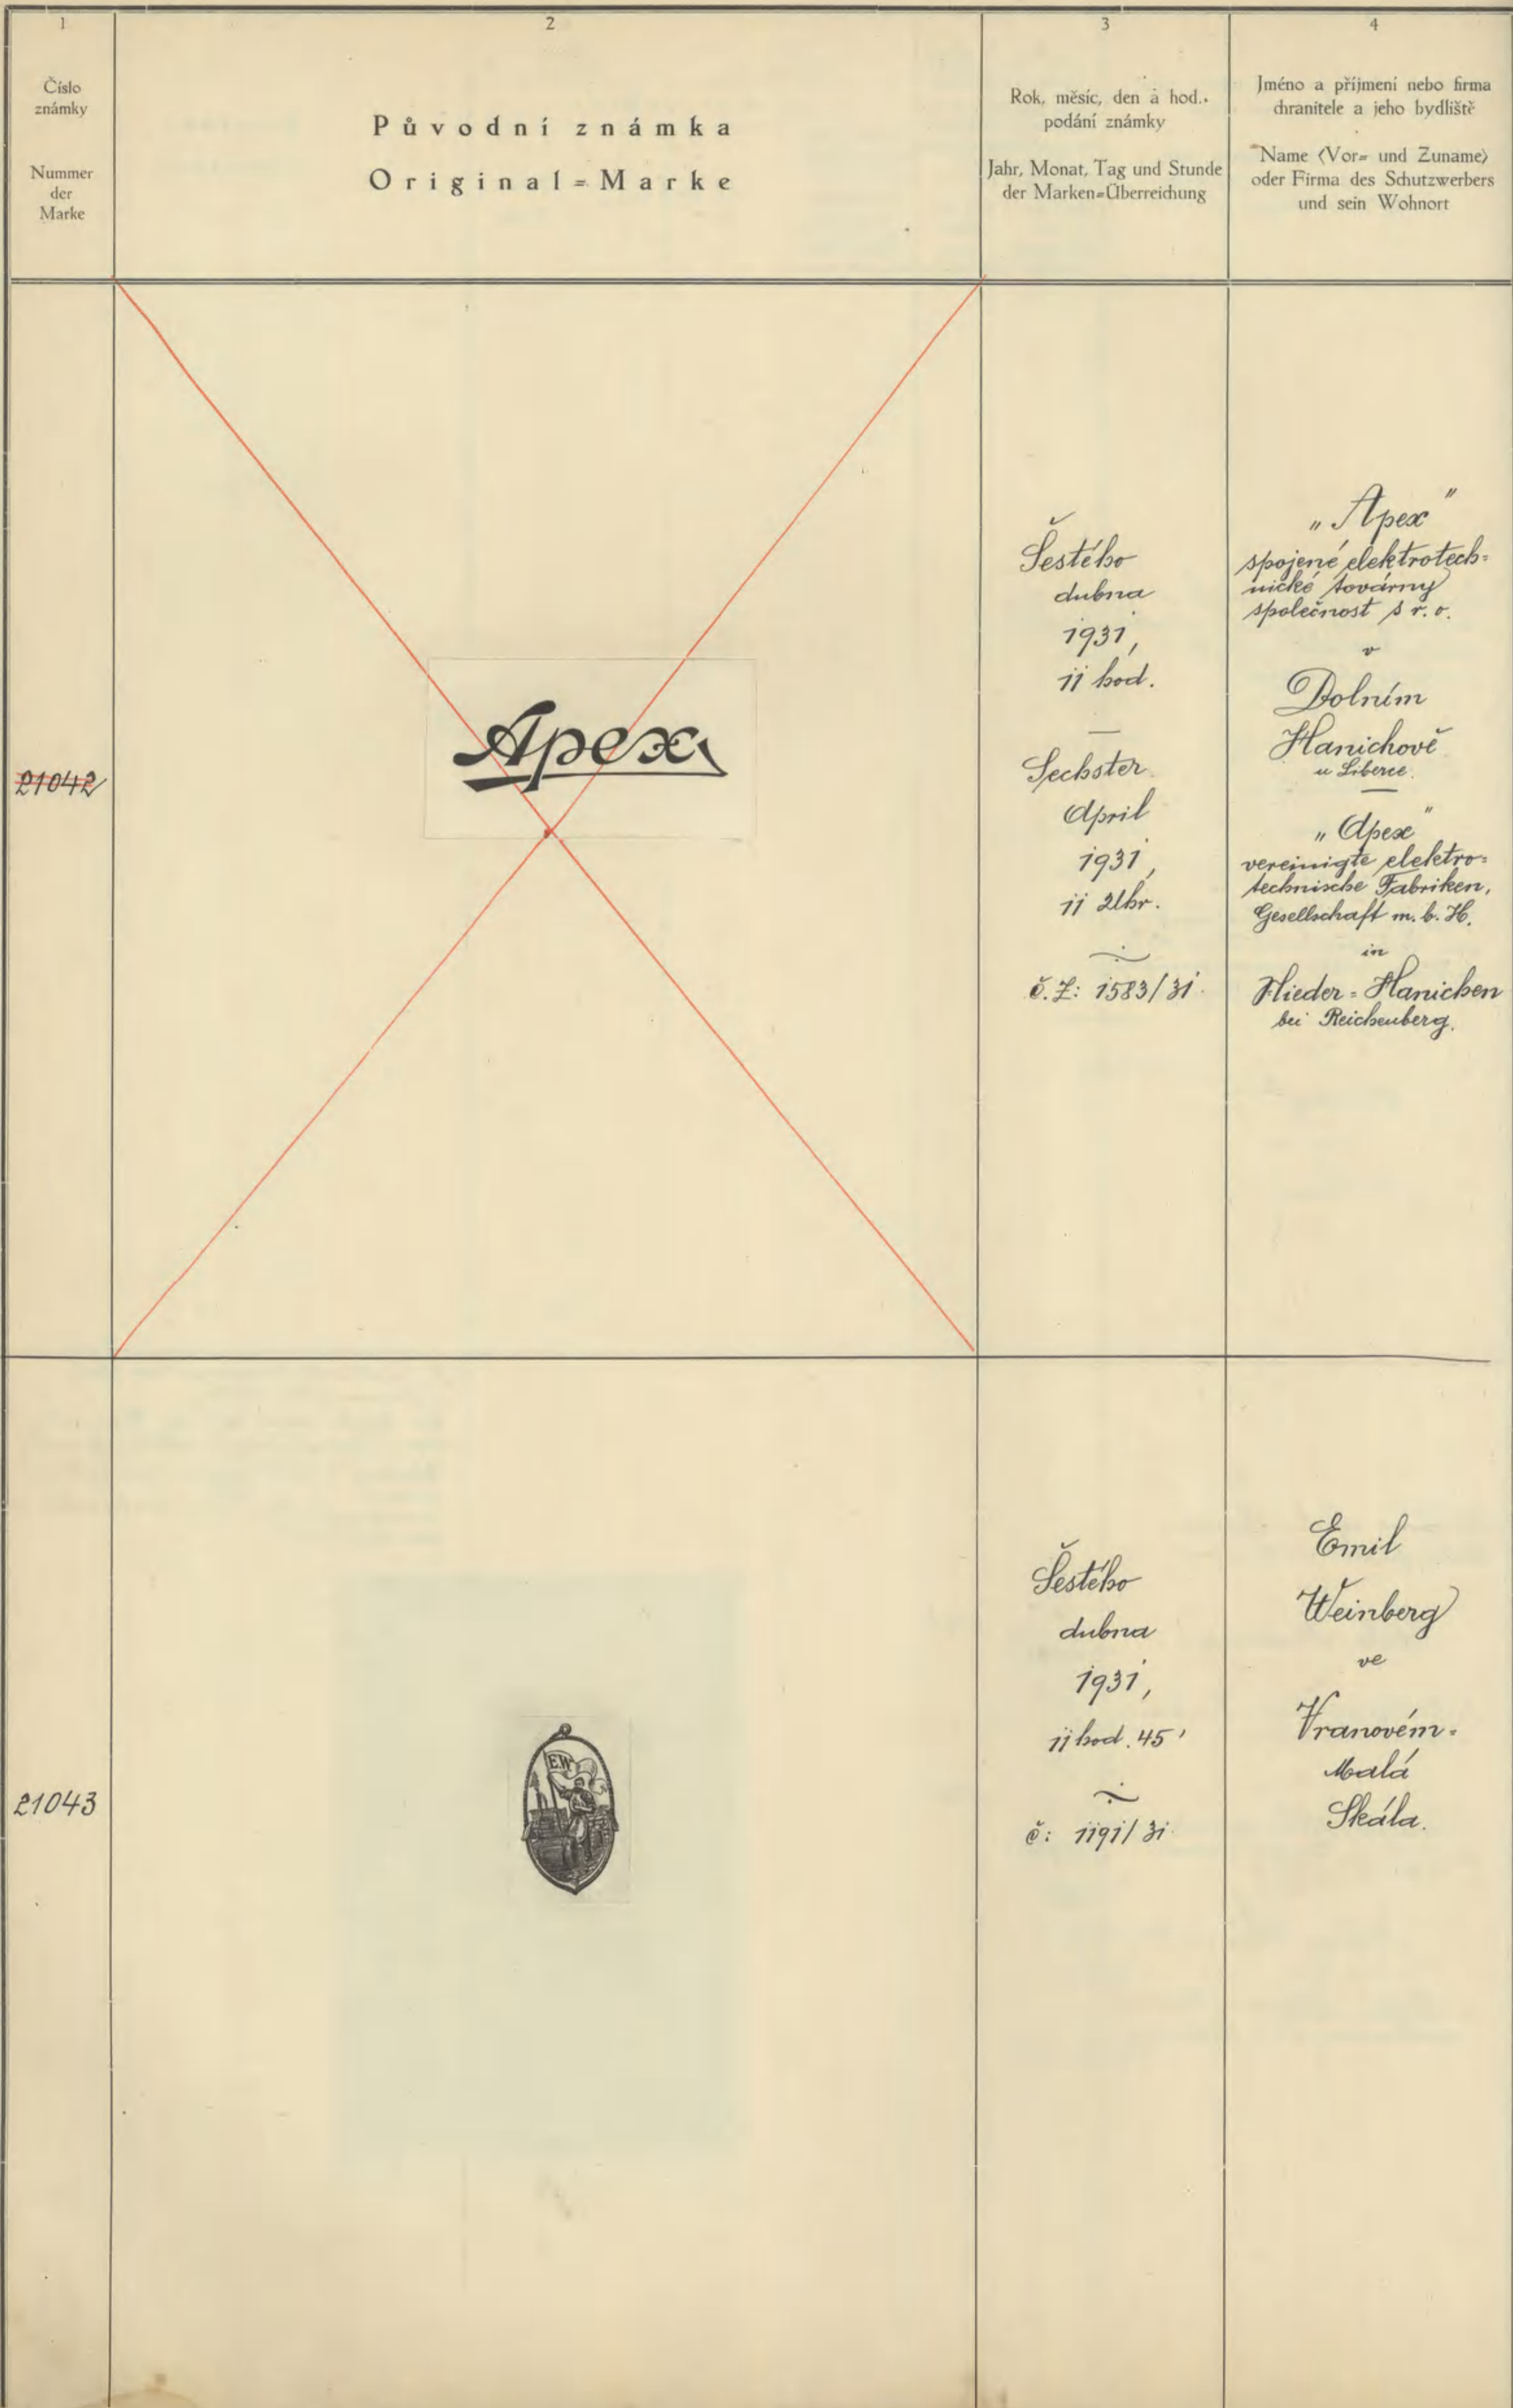 1
Číslo
známky
Nummer
der
Marke
2
Původní známka
Original=Marke
3
Rok, měsíc, den a hod.
podání známky
Jahr, Monat, Tag und Stunde
der Marken=Überreichung
4
Jméno a příjmení nebo firma
chranitele a jeho bydliště
Name (Vor= und Zuname)
oder Firma des Schutzwerbers
und sein Wohnort
21042
Apex
Šestého
dubna
1931,
11 hod.
—
Sechster
April
1931,
11 Uhr.
č. Z: 1583/31
„Apex"
spojené elektrotech=
nické továrny
společnost s r. o.
v
Dolním
Hanichově
u Liberce.
—
„Apex"
vereinigte elektro=
technische Fabriken,
Gesellschaft m. b. H.
in
Nieder=Hanichen
bei Reichenberg.
21043
EW
Šestého
dubna
1931,
11 hod. 45'
č: 1191/31
Emil
Weinberg
ve
Vranovém=
Malá
Skála.